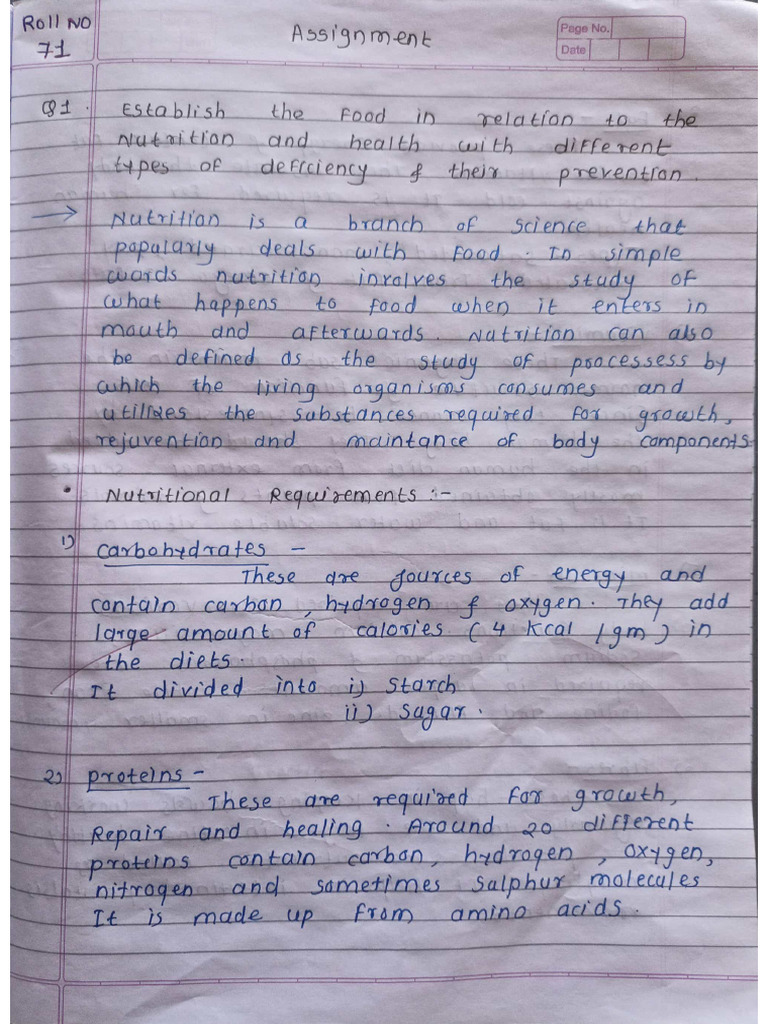 Roll NO
71
Assignment
Page No.
Date
Q1. Establish the Food in relation to the
Nutrition and health with different
types of deficiency & their prevention.
→ Nutrition is a branch of science that
popularly deals with food. In simple
words nutrition involves the study of
what happens to food when it enters in
mouth and afterwards. Nutrition can also
be defined as the study of processess by
which the living organisms consumes and
utilizes the substances required for growth,
rejuvention and maintance of body components.
• Nutritional Requirements :-
1) Carbohydrates -
These are sources of energy and
contain carbon, hydrogen & oxygen. They add
large amount of calories (4 Kcal /gm) in
the diets.
It divided into i) Starch
ii) Sugar.
2) Proteins -
These are required for growth,
Repair and healing. Around 20 different
proteins contain carbon, hydrogen, oxygen,
nitrogen and sometimes Salphur molecules
It is made up from amino acids.